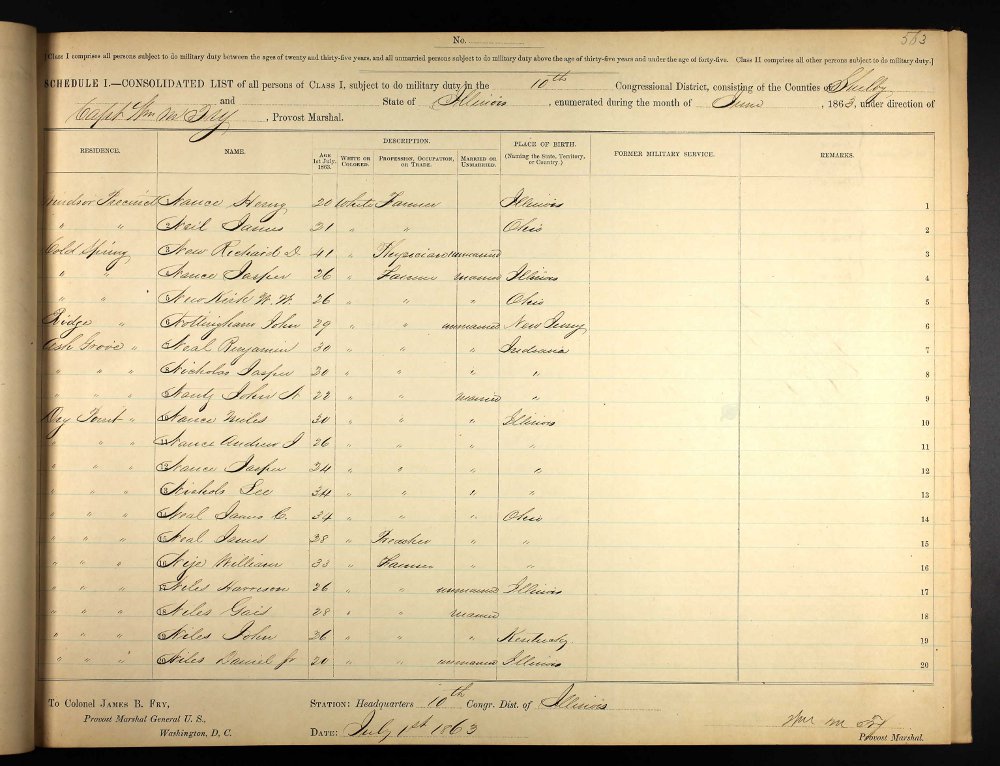 No. 583
[Class I comprises all persons subject to do military duty between the ages of twenty and thirty-five years, and all unmarried persons subject to do military duty above the age of thirty-five years and under the age of forty-five. Class II comprises all other persons subject to do military duty.]
SCHEDULE I.—CONSOLIDATED LIST of all persons of CLASS I, subject to do military duty in the 10th Congressional District, consisting of the Counties of Shelby
and State of Illinois, enumerated during the month of June, 1863, under direction of
Capt Wm M Fry, Provost Marshal.
RESIDENCE. NAME. DESCRIPTION. PLACE OF BIRTH. FORMER MILITARY SERVICE. REMARKS.
AGE 1st July, 1863. WHITE OR COLORED. PROFESSION, OCCUPATION, OR TRADE. MARRIED OR UNMARRIED. (Naming the State, Territory, or Country.)
Windsor Precinct Nance Henry 20 White Farmer Illinois 1
" " 2 Neil James 21 " " Ohio 2
Cold Spring 3 New Richard D. 41 " Physician unmarried 3
" " Nance Jasper 26 " Farmer married Illinois 4
" " W. W. 26 " " " Ohio 5
Ridge " 6 Nottingham John 29 " " unmarried New Jersey 6
Ash Grove " Neal Benjamin 30 " " " Indiana 7
" " " Nicholas Jasper 30 " " " " 8
" " " John 22 " " married " 9
Dry Point " 10 Nance 30 " " " Illinois 10
" " " 11 Nance Andrew J 26 " " " " 11
" " " 12 Nance Jasper 24 " " " " 12
" " " 13 Nichols Lee 34 " " " " 13
" " " 14 Neal James C. 34 " " " Ohio 14
" " " 15 Neal James 38 " Preacher " " 15
" " " 16 William 33 " Farmer " " 16
" " " 17 Niles Harrison 26 " " unmarried Illinois 17
" " " 18 Niles 28 " " married 18
" " " 19 Niles John 26 " " " Kentucky 19
" " " 20 Niles Daniel Jr 20 " " unmarried Illinois 20
To Colonel JAMES B. FRY, STATION: Headquarters 10th Congr. Dist. of Illinois
Provost Marshal General U. S.,
Washington, D. C. DATE: July 1st 1863 Wm M Fry
Provost Marshal.